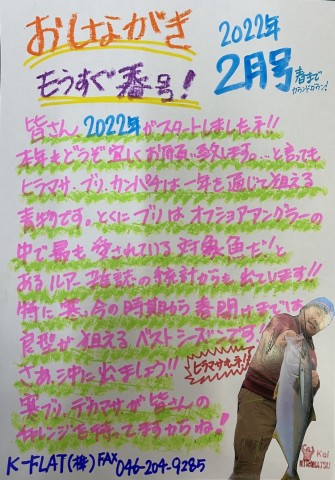 おしながき
もうすぐ春号!
2022年
2月号
春まで
カウントダウン!
皆さん、2022年がスタートしましたネ!!
本年もどうぞ宜しくお願い致します。…と言っても
ヒラマサ・ブリ・カンパチは一年を通じて狙える
青物です。とくにブリはオフショアアングラーの
中で最も愛されている対象魚だ!と
あるルアー雑誌の統計からも出ています!!
特に寒い今の時期から春明けまでは
良型が狙えるベストシーズンです!!
さあ、沖に出ましょう!!
ヒラマサもネ!
寒ブリ、デカマサが皆さんの
チャレンジを待ってますからね!
K-FLAT(株) FAX 046-204-9285
Kei